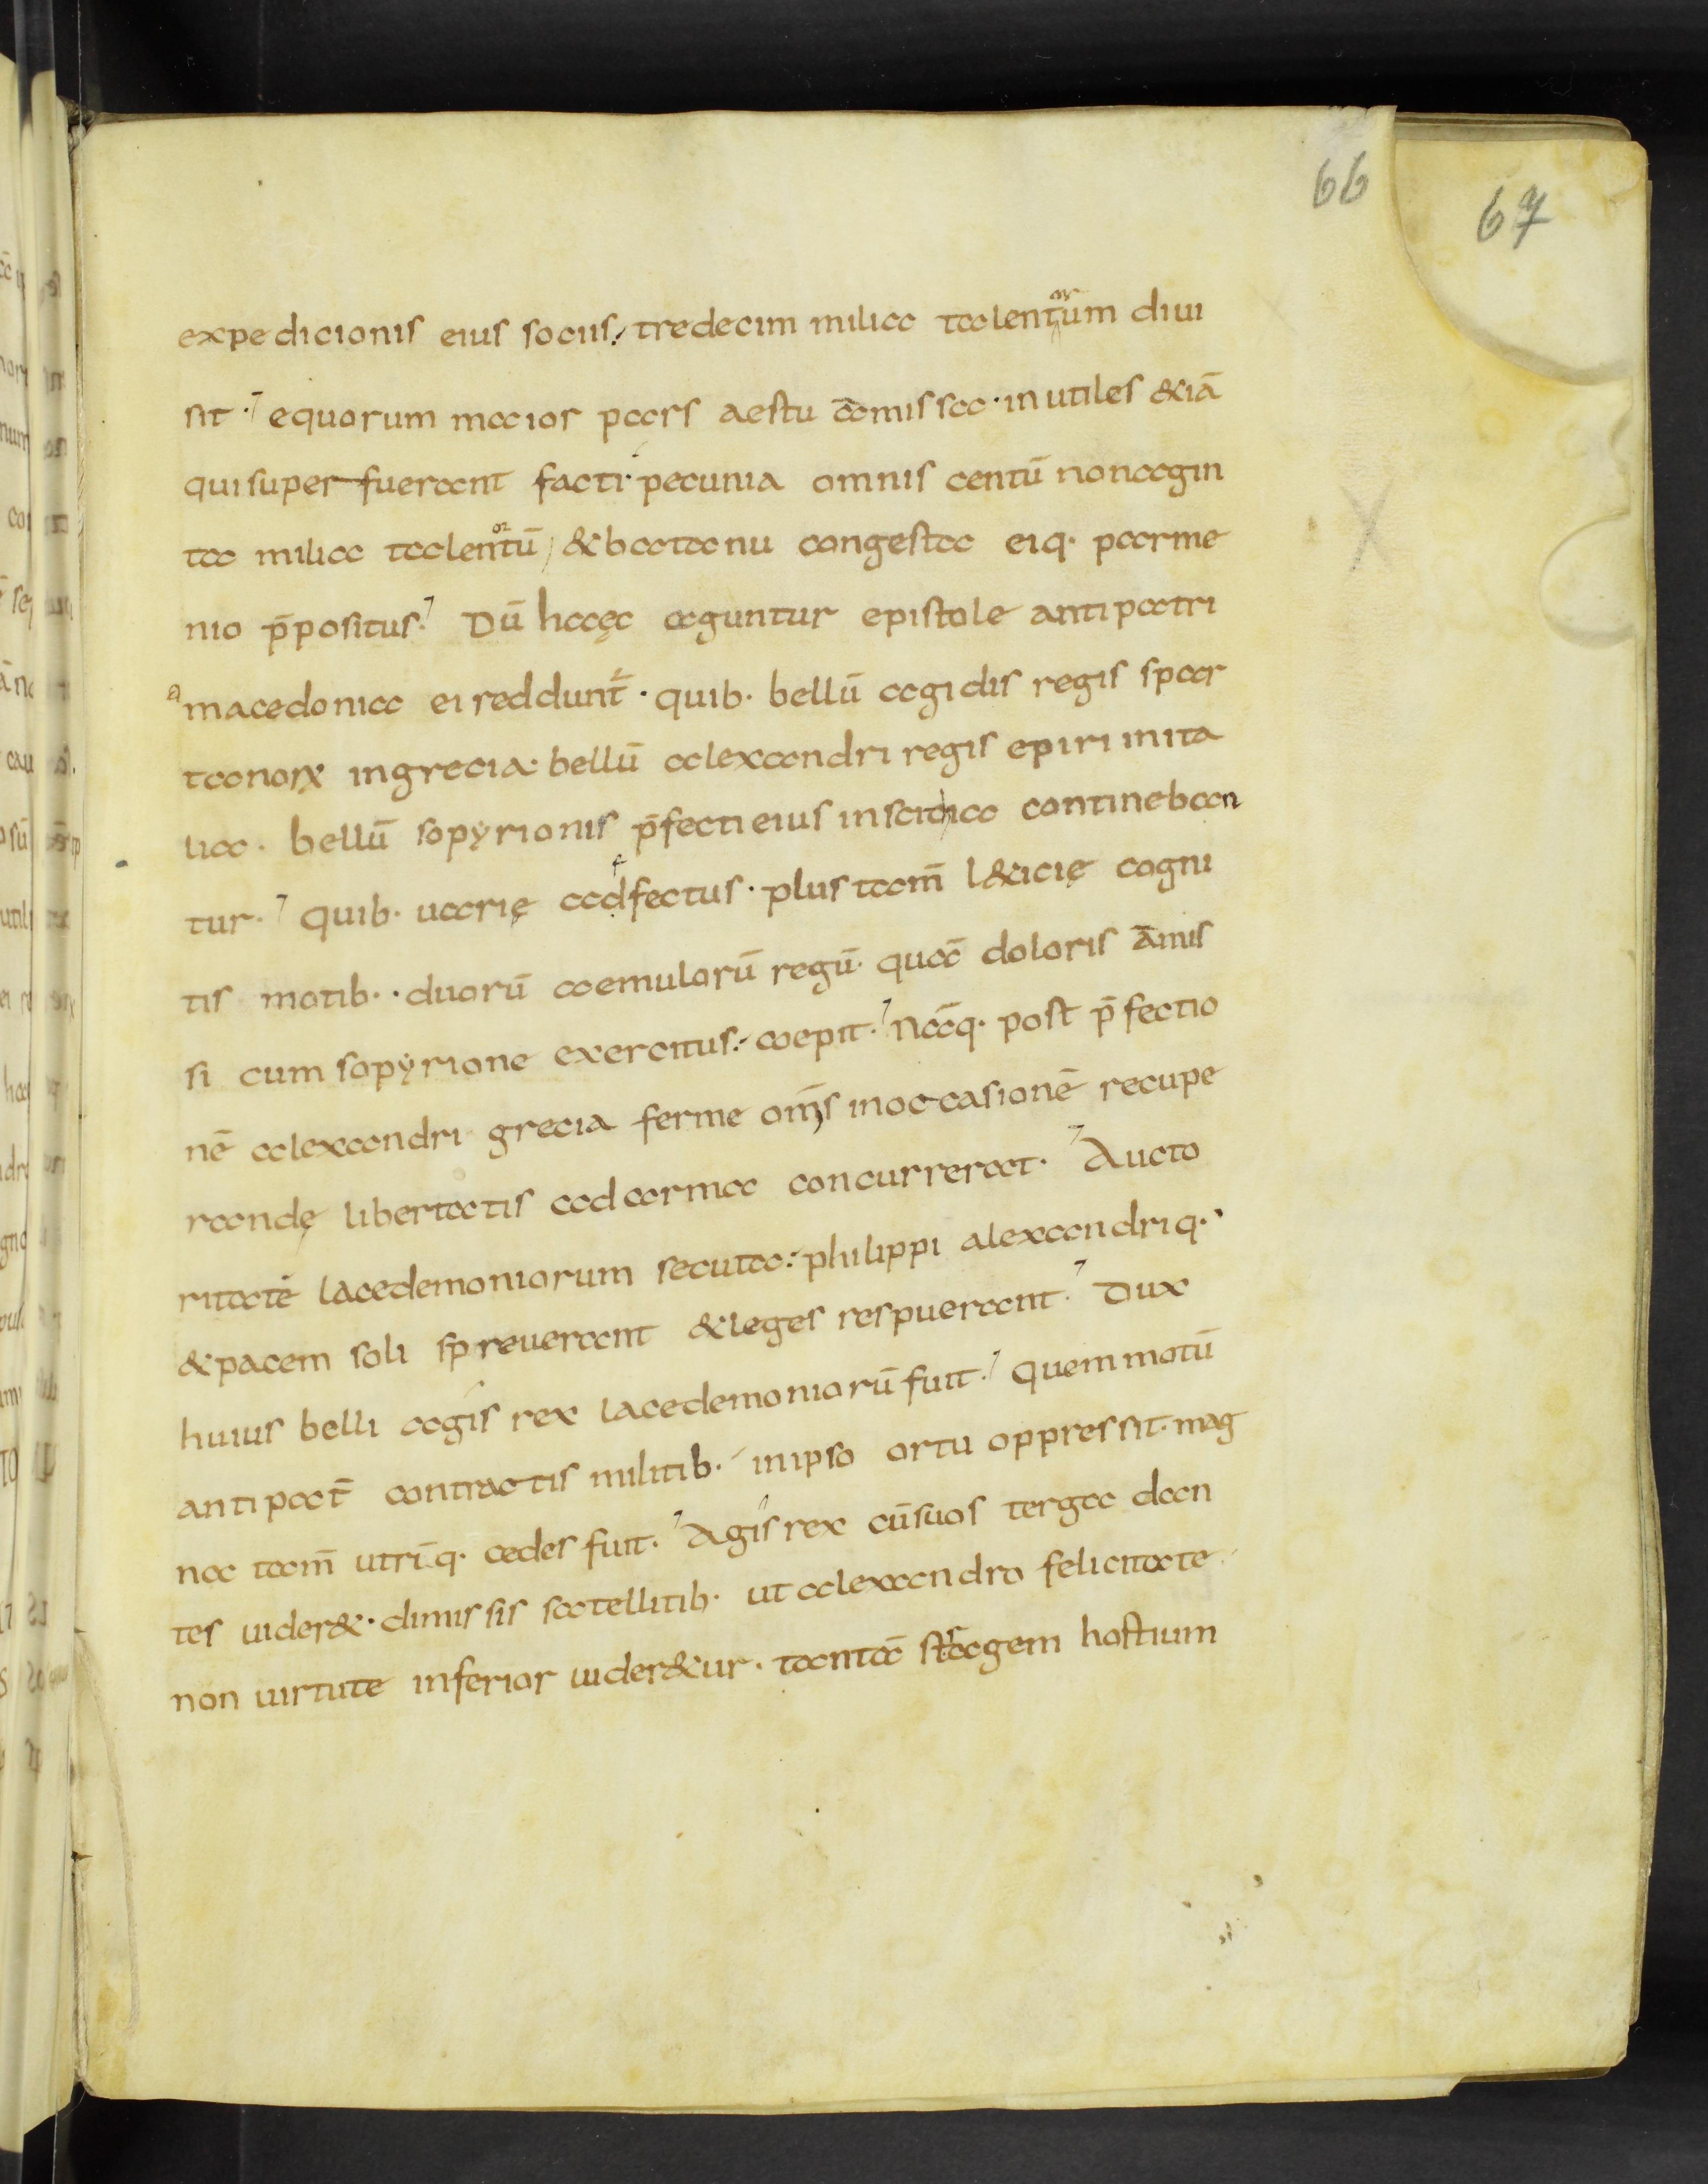 66
67
expedicionis eius sociis; tredecim milia talentorum diui
sit · equorum maior pars aestu āmissa · inutiles &iā
qui superfuerant facti · pecunia omnis centū nonagin
ta milia talentorū / & batanu congesta eiq· parme
nio p̄positus · Dū haęc aguntur epistole antipatri
a macedonia ei reddunt̄ · quib· bellū agidis regis spar
tanoꝝ ingrecia · bellū alexandri regis epiri inita
lia · bellū sopyrionis p̄fecti eius inscithia contineban
tur · Quib· uarię adfectus · plus tam̄ l&icię cogni
tis motib· · duorū aemulorū regū · quā doloris āmis
si cum sopyrione exercitus · coepit · Nāq· post p̄fectio
nē alexandri grecia ferme om̄s inoccasionē recupe
randę libertatis ad arma concurrerat · Aucto
ritatē lacedemoniorum secuta · philippi alexandriq·
& pacem soli spreuerant & leges respuerant · Dux
huius belli agis rex lacedemoniorū fuit · Quem motū
antipat̄ contractis militib· inipso ortu oppressit · mag
na tam̄ utriq̄· cedes fuit · Agis rex cūsuos terga dan
tes uider& · dimissis satellitib· ut alexandro felicitate
non uirtute inferior uider&ur · tantā stragem hostium